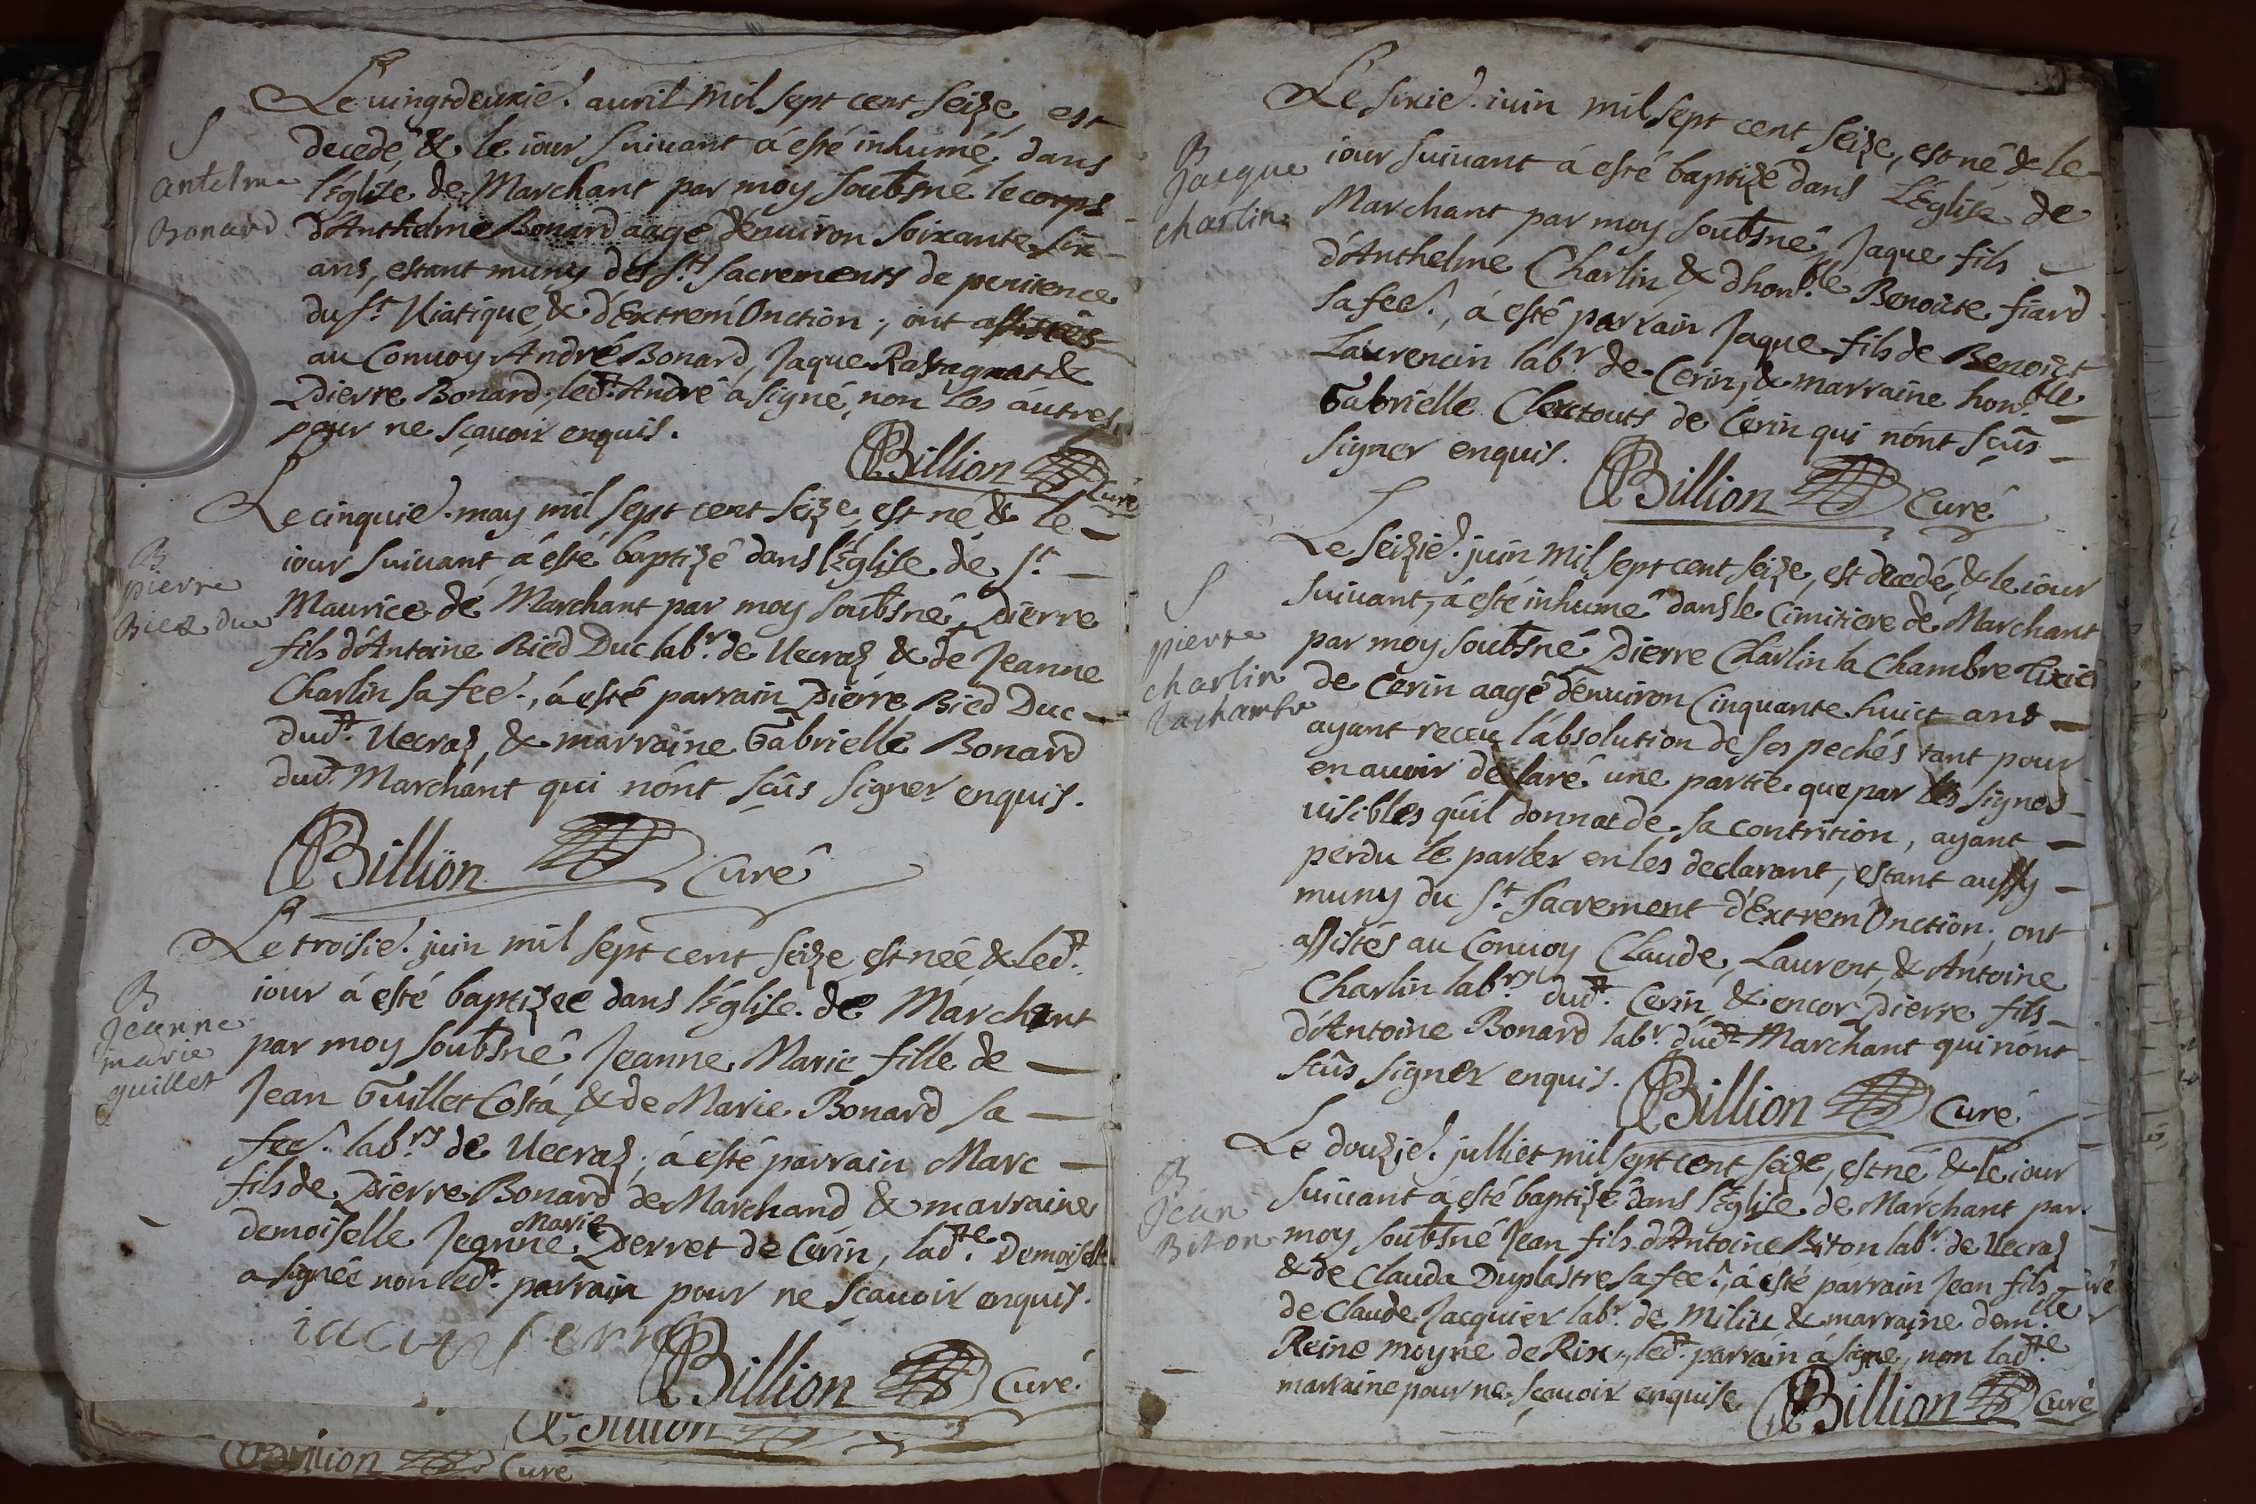 Le vingtdeuxie. auril mil sept cent seize, est
decedé, & le iour suiuant á esté inhumé, dans
l'Eglize de Marchant par moy soubsné le corps
d'Anthelme Bonard aagé d'enuiron soixante six
ans, estant muny des sts. sacrements de penitence
du st. Uiatique, & d'Extrem Onction; ont assistés
au Conuoy André Bonard, Jaque Rastagnat &
Pierre Bonard; led. André a signé, non les autres
pour ne sçauoir enquis.
Billion Curé
S
antelme
Bonard
Le cinquie. may mil sept cent seize, est né & le
iour suiuant á esté baptizé dans l'Eglise de st.
Maurice de Marchant par moy soubsné, Pierre
fils d'Antoine Bied Duc labr. de Uecraz & de Jeanne
Charlin sa fee., á esté parrain Pierre Bied Duc
dud. Uecraz, & marraine Gabrielle Bonard
dud. Marchant qui n'ont sçûs signer enquis.
Billion Curé
B
pierre
Bied duc
Le troisie. juin mil sept cent seize est née & led.
iour á esté baptizee dans l'Eglise de Marchant
par moy soubsné, Jeanne Marie fille de
Jean Guillet Costa, & de Marie Bonard sa
fee. labrs. de Uecraz; á esté parrain Marc
fils de Pierre Bonard de Marchand & marraine
demoiselle Jeanne Marie Perret de Cerin, ladte. Demoiselle
a signée non led. parrain pour ne sçauoir enquis.
Billion Curé
B
Jeanne
marie
guillet
Billion
Billion Curé
Le sixie. iuin mil sept cent seize, est né & le
iour suiuant á esté baptizé dans l'Eglise de
Marchant par moy soubsné, Jaque fils
d'Anthelme Charlin & d'honble. Benoite fiard
sa fee., á esté parrain Jaque fils de Benoict
Laurencin labr. de Cerin, & marraine honble.
Gabrielle Clextouts de Cerin qui n'ont sçûs
signer enquis. Billion Curé
B
Jacque
charlin
Le seizie. juin mil sept cent seize, est decedé, & le iour
suiuant, á esté inhumé dans le Cimitiere de Marchant
par moy soubsné Pierre Charlin la Chambre Tixier
de Cerin aagé d'enuiron Cinquante huict ans
ayant receu l'absolution de ses pechés tant pour
en auoir declaré une partie que par les signes
uisibles qu'il donnat de sa contrition, ayant
perdu le parler en les declarant, estant aussy
muny du st. sacrement d'Extrem Onction; ont
assistés au Conuoy Claude, Laurent, & Antoine
Charlin labrs. dud. Cerin, & encor Pierre fils
d'Antoine Bonard labr. dud. Marchant qui n'ont
sçûs signer enquis. Billion Curé
S
pierre
charlin
lachambre
Le douzie. julliet mil sept cent seize, est né & le iour
suiuant á esté baptizé dans l'Eglise de Marchant par
moy soubsné Jean fils d'Antoine Biton labr. de Uecraz
& de Clauda Duplastre sa fee., á esté parrain Jean fils
de Claude Jacquier labr. de Milieu & marraine demlle.
Reine Moyne de Rix, led. parrain á signé, non ladte.
marraine pour ne sçauoir enquise Billion Curé
B
Jean
Biton